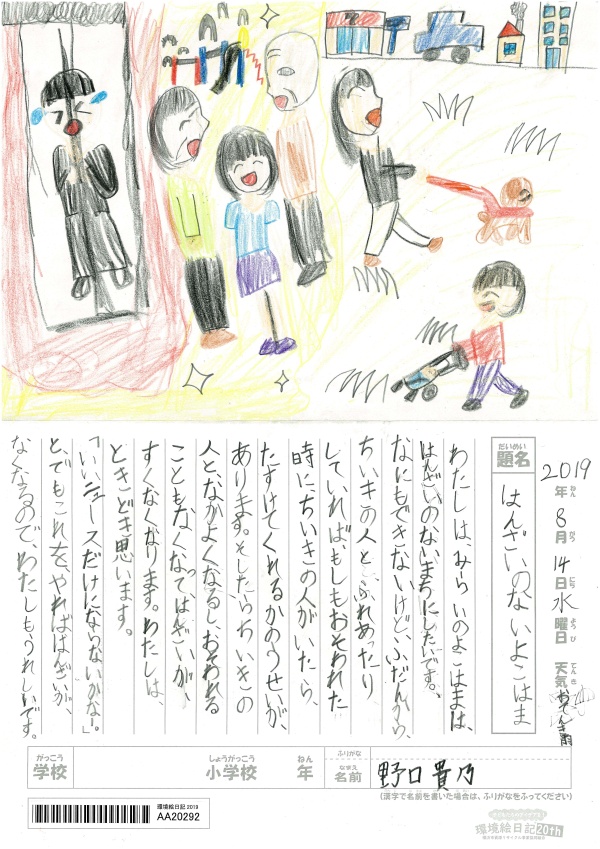 2019年8月14日水曜日 天気おてんき雨
ねん がつ にち ようび てんき
だいめい
題名
はんざいのないよこはま
わたしは、みらいのよこはまは、
はんざいのないまちにしたいです。
なにもできないけど、ふだんから、
ちいきの人と、ふれあったり
していれば、もしもおそわれた
時にちいきの人がいたら、
たすけてくれるかのうせいが、
あります。そしたらちいきの
人と、なかよくなるし、おそわれる
こともなくなってはんざいが、
すくなくなります。わたしは、
ときどき思います。
「いいニュースだけにならないかな〜。」
と、でもこれを、やればはんざいが、
なくなるので、わたしもうれしいです。
がっこう
学校
しょうがっこう
小学校
ねん
年
ふりがな
なまえ
名前
野口貴乃
(漢字で名前を書いた場合は、ふりがなをふってください)
環境絵日記 2019
AA20292
環境絵日記20th